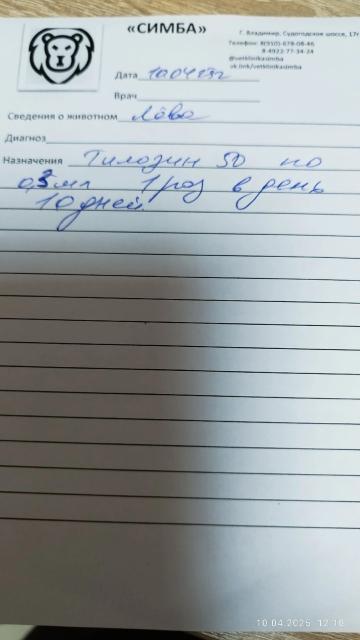 «СИМБА»
Г. Владимир, Судогодское шоссе, 17г
Телефоны: 8(910)-678-08-46
8-4922-77-34-24
@vetklinikasimba
vk.link/vetklinikasimba
Дата
Врач
Сведения о животном Лёва
Диагноз
Назначения Тилозин 50 по
0,3 мл 1 раз в день
10 дней
10.04.2025 12:10